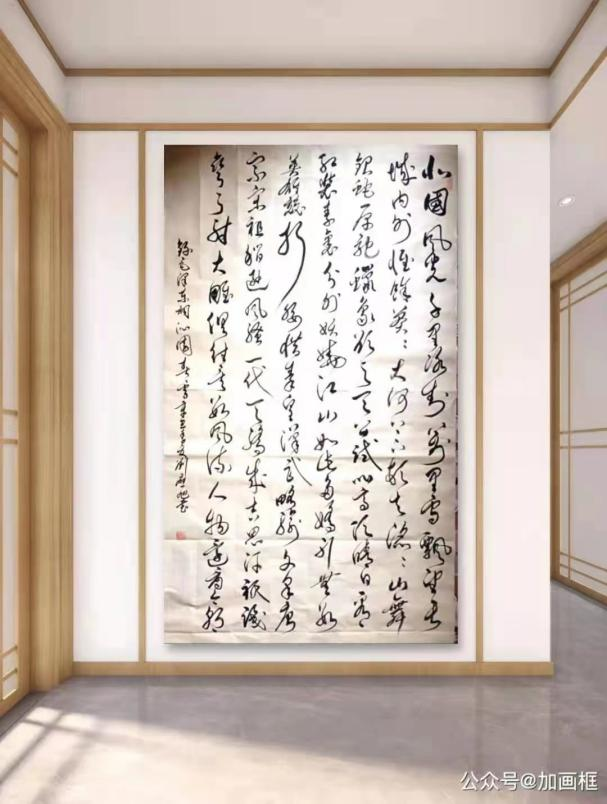 北國風光千里冰封萬里雪飄望長
城內外惟餘莽々大河上下頓失滔々山舞
銀蛇原馳蠟象欲與天公試比高須晴日看
紅裝素裹分外妖嬈江山如此多嬌引無數
英雄競折腰惜秦皇漢武略輸文采唐
宗宋祖稍遜風騷一代天驕成吉思汗祇識
彎弓射大雕俱往矣數風流人物還看今朝
錄毛澤東詞沁園春雪
公众号@加画框